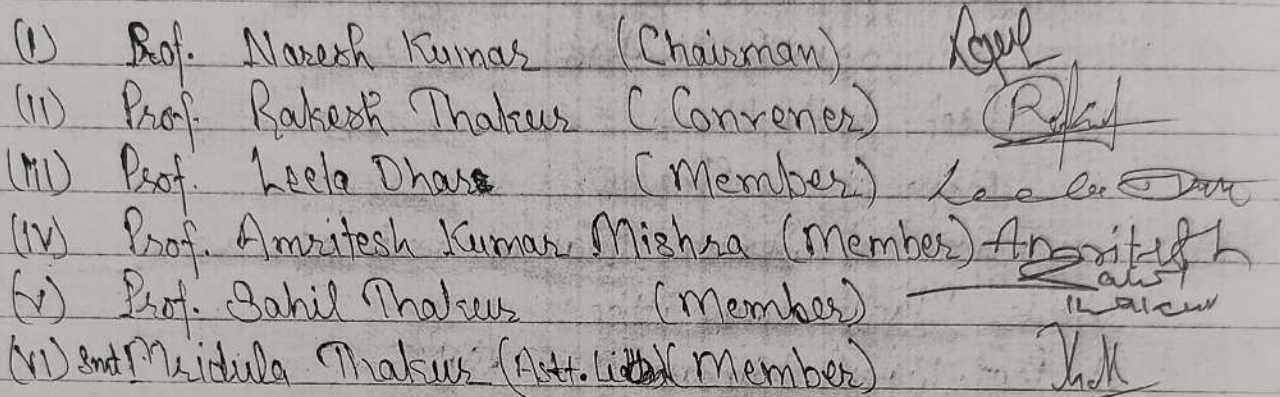 (I) Prof. Naresh Kumar (Chairman)
(II) Prof. Rakesh Thakur (Convener)
(III) Prof. Leela Dhar (Member) Leela Dhar
(IV) Prof. Amritesh Kumar Mishra (Member) Amritesh
(V) Prof. Sahil Thakur (Member)
(VI) Smt Mridula Thakur (Astt. (Member)